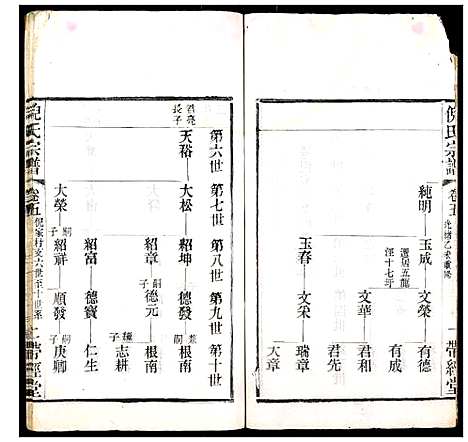 倪氏宗譜
卷五
帶經堂
純明
玉成
文榮
有德
遷居五龍
涇十七年
文華
有成
君和
玉春
文采
君先
瑞章
大章
第六世
第七世
第八世
第九世
第十世
長子
天裕
大松
紹坤
德發
兼嗣
根南
紹章
嗣子
德元
根南
兼子
志耕
紹富
德寶
仁生
大榮
嗣子
紹祥
順發
嗣子
庚卿
倪氏宗譜
卷五
倪家村支六世至十世系
一
帶經堂